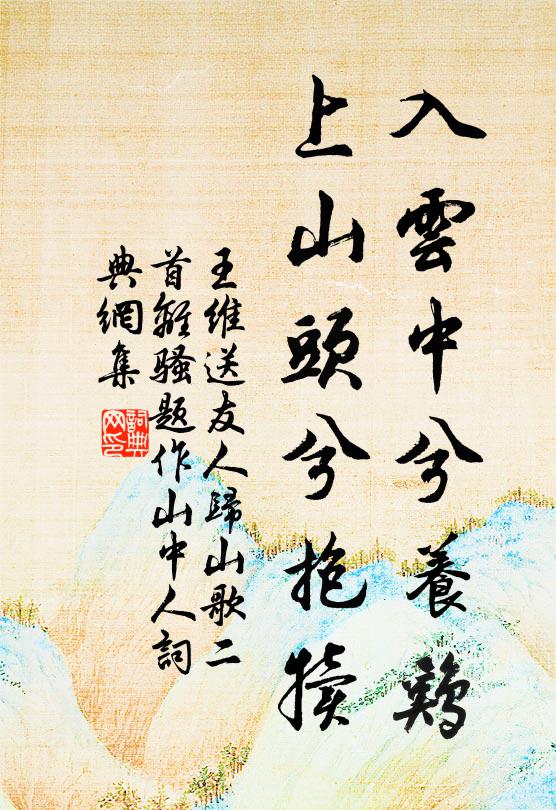 入雲中兮養鷄
上山頭兮抱犢
王維送友人歸山歌二
首離騷題作山中人詞
典網集
詞典網印